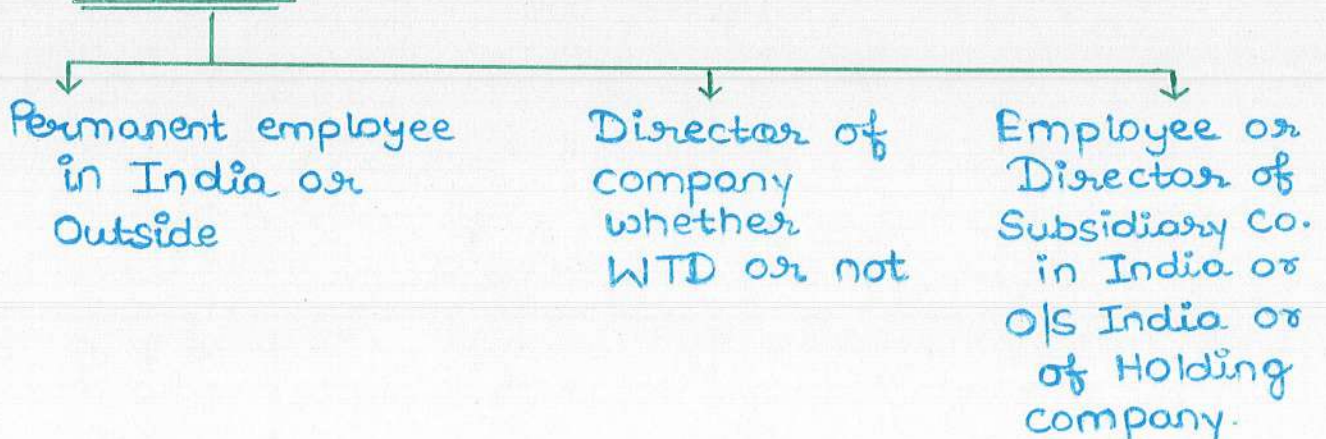 Permanent employee
in India or
Outside
Director of
company
whether
WTD or not
Employee or
Director of
Subsidiary Co.
in India or
O/S India or
of Holding
company.